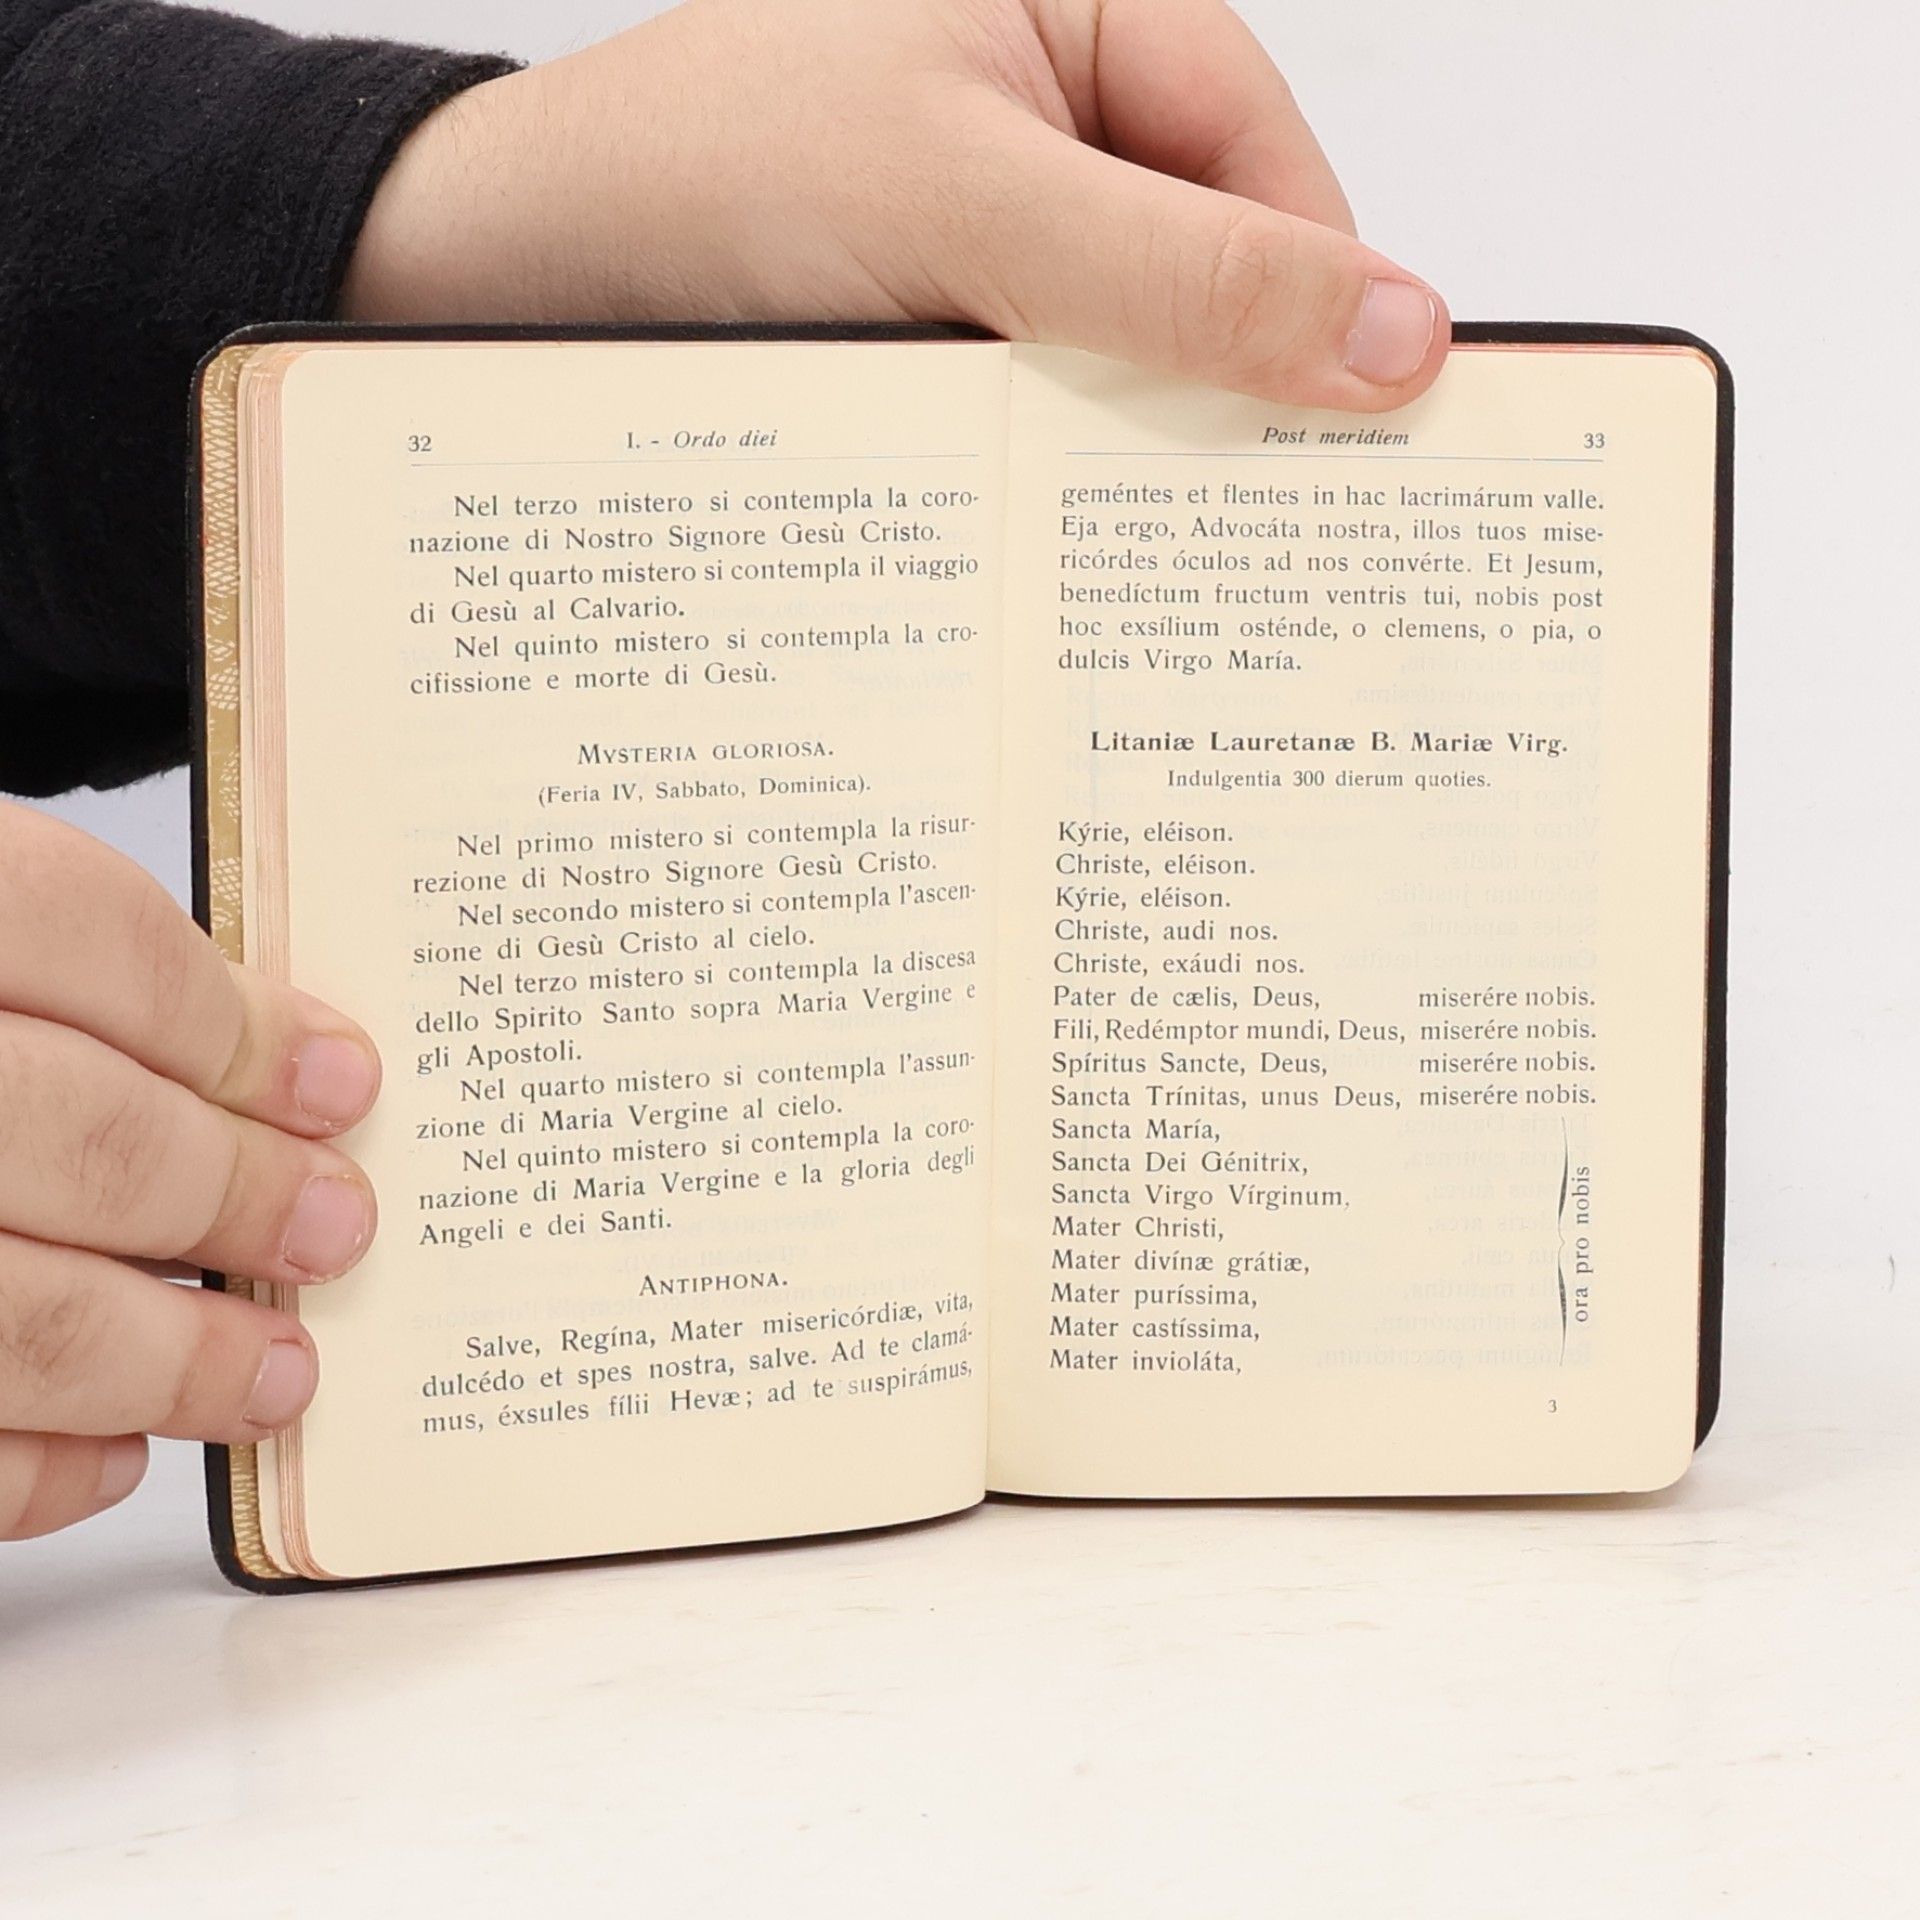 32 I. - Ordo diei
Nel terzo mistero si contempla la coro-
nazione di Nostro Signore Gesù Cristo.
Nel quarto mistero si contempla il viaggio
di Gesù al Calvario.
Nel quinto mistero si contempla la cro-
cifissione e morte di Gesù.
MYSTERIA GLORIOSA.
(Feria IV, Sabbato, Dominica).
Nel primo mistero si contempla la risur-
rezione di Nostro Signore Gesù Cristo.
Nel secondo mistero si contempla l'ascen-
sione di Gesù Cristo al cielo.
Nel terzo mistero si contempla la discesa
dello Spirito Santo sopra Maria Vergine e
gli Apostoli.
Nel quarto mistero si contempla l'assun-
zione di Maria Vergine al cielo.
Nel quinto mistero si contempla la coro-
nazione di Maria Vergine e la gloria degli
Angeli e dei Santi.
ANTIPHONA.
Salve, Regína, Mater misericórdiæ, vita,
dulcédo et spes nostra, salve. Ad te clamá-
mus, éxsules fílii Hevæ; ad te suspirámus,
Post meridiem 33
geméntes et flentes in hac lacrimárum valle.
Eja ergo, Advocáta nostra, illos tuos mise-
ricórdes óculos ad nos convérte. Et Jesum,
benedíctum fructum ventris tui, nobis post
hoc exsílium osténde, o clemens, o pia, o
dulcis Virgo María.
Litaniæ Lauretanæ B. Mariæ Virg.
Indulgentia 300 dierum quoties.
Kýrie, eléison.
Christe, eléison.
Kýrie, eléison.
Christe, audi nos.
Christe, exáudi nos.
Pater de cælis, Deus, miserére nobis.
Fili, Redémptor mundi, Deus, miserére nobis.
Spíritus Sancte, Deus, miserére nobis.
Sancta Trínitas, unus Deus, miserére nobis.
Sancta María,
Sancta Dei Génitrix,
Sancta Virgo Vírginum,
Mater Christi,
Mater divínæ grátiæ,
Mater puríssima,
Mater castíssima,
Mater invioláta,
ora pro nobis
3